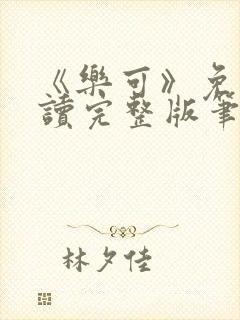 《樂可》免
讀完整版筆
林夕佳